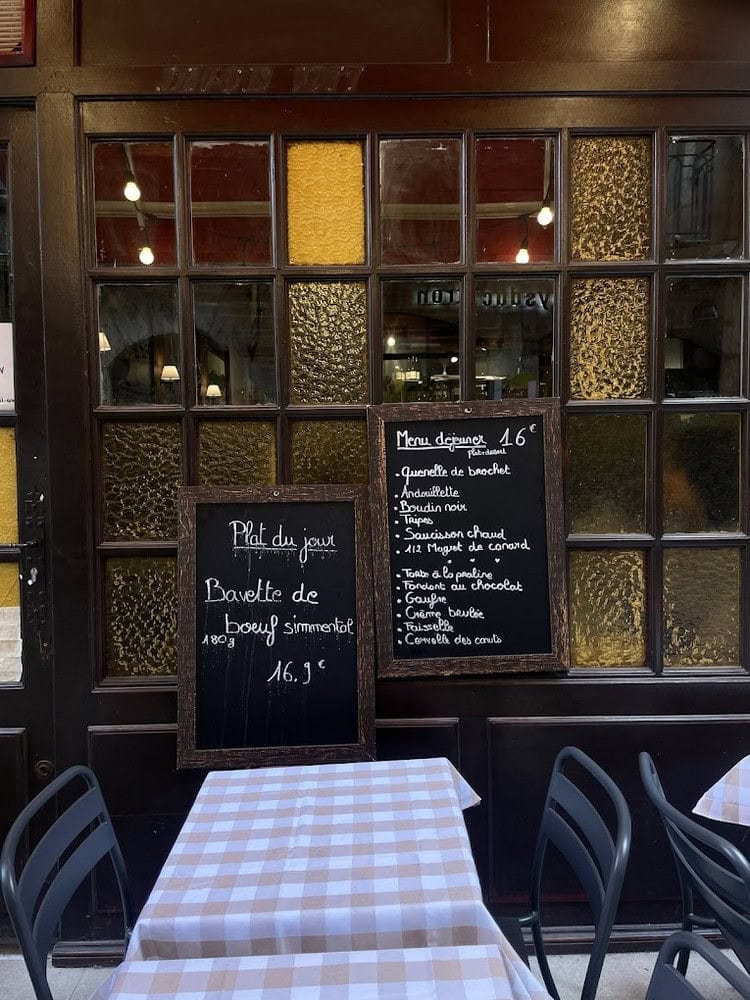 Plat du jour
Bavette de
boeuf simmental
180g
16.9€
Menu déjeuner 16€
plat+dessert
• Quenelle de brochet
• Andouillette
• Boudin noir
• Tripes
• Saucisson chaud
• 1/2 Magret de canard
• Tarte à la praline
• Fondant au chocolat
• Gaufre
• Crème brulée
• Faisselle
• Cervelle des canuts